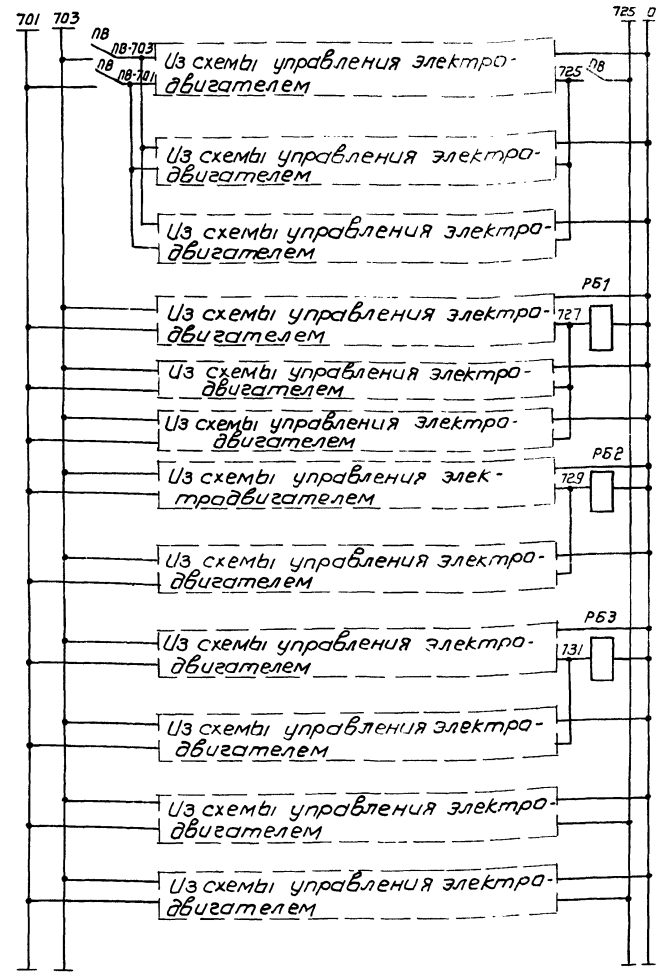 701 703 725 0
ПВ
ПВ-703
Из схемы управления электро-
двигателем
ПВ
ПВ-701
725 ПВ
Из схемы управления электро-
двигателем
Из схемы управления электро-
двигателем
РБ1
Из схемы управления электро-
двигателем
727
Из схемы управления электро-
двигателем
Из схемы управления электро-
двигателем
РБ2
Из схемы управления элек-
тродвигателем
729
Из схемы управления электро-
двигателем
РБ3
Из схемы управления электро-
двигателем
731
Из схемы управления электро-
двигателем
Из схемы управления электро-
двигателем
Из схемы управления электро-
двигателем